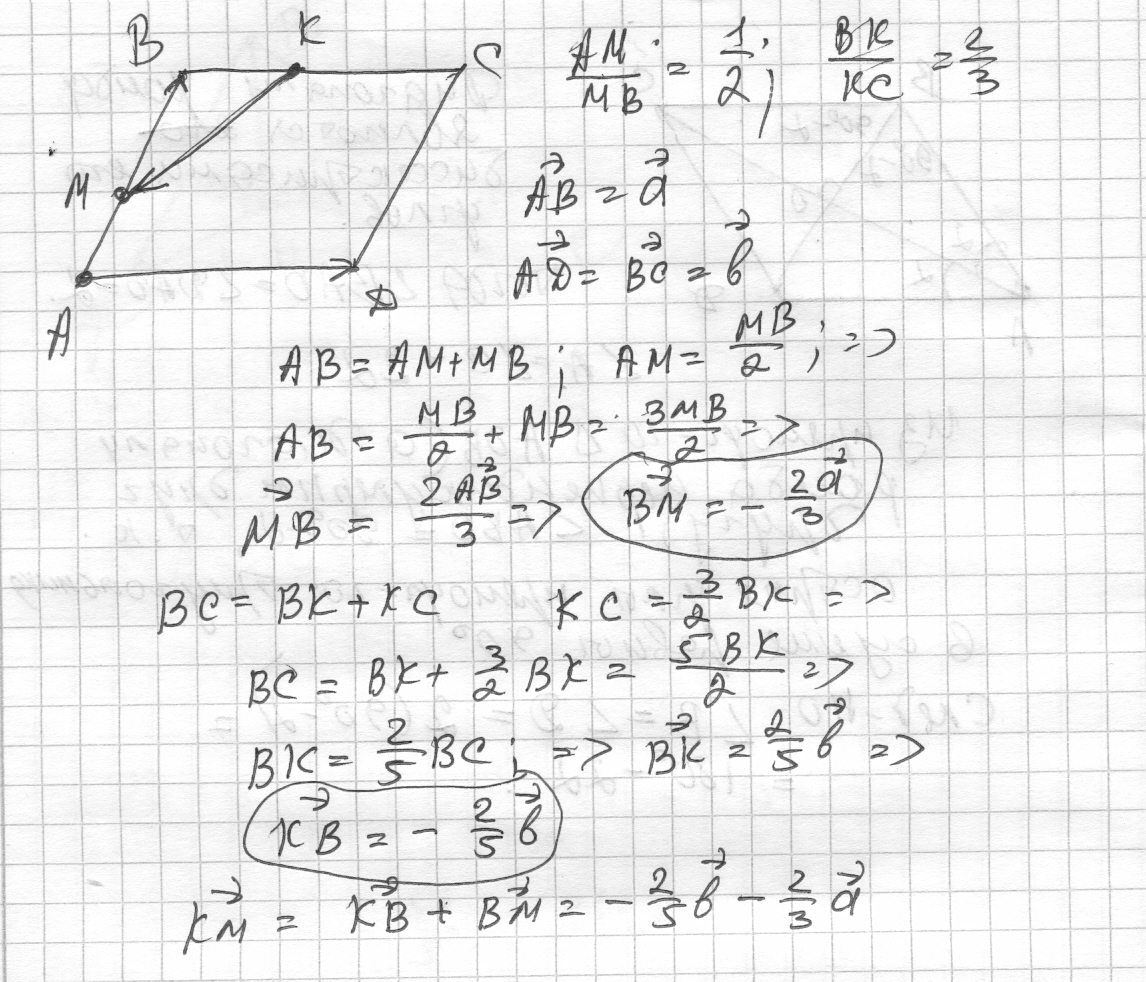 B K C
M
A D
AM/MB = 1/2; BK/KC = 2/3
AB⃗ = a⃗
AD⃗ = BC⃗ = b⃗
AB = AM + MB; AM = MB/2; =>
AB = MB/2 + MB = 3MB/2 =>
MB⃗ = 2AB⃗/3 => BM⃗ = - 2a⃗/3
BC = BK + KC KC = 3/2 BK =>
BC = BK + 3/2 BK = 5BK/2 =>
BK = 2/5 BC; => BK⃗ = 2/5 b⃗ =>
KB⃗ = - 2/5 b⃗
KM⃗ = KB⃗ + BM⃗ = - 2/5 b⃗ - 2/3 a⃗